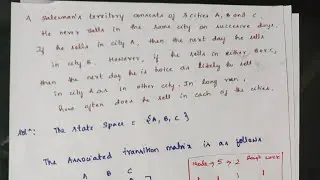 A salesman's territory consists of 3 cities A, B and C.
He never sells in the same city on successive days.
If he sells in city A, then the next day he sells
in city B. However, if he sells in either B or C,
then the next day he is twice as likely to sell
in city A as in other city. In long run,
How often does he sell in each of the cities.
Solⁿ: The State Space = {A, B, C}
The Associated transition matrix is as follows
A B C